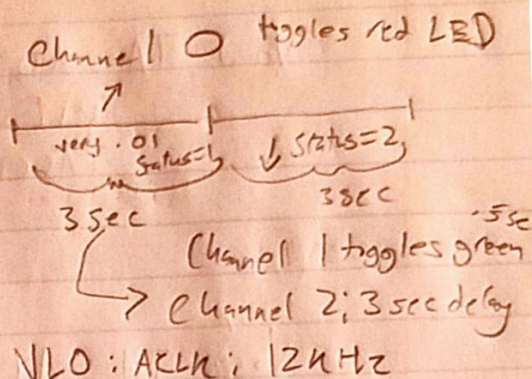 Channel 0 toggles red LED
very .01
status=1
status=2
3 sec
3 sec
.5 se
Channel 1 toggles green
Channel 2; 3 sec delay
VLO: ACLK; 12kHz